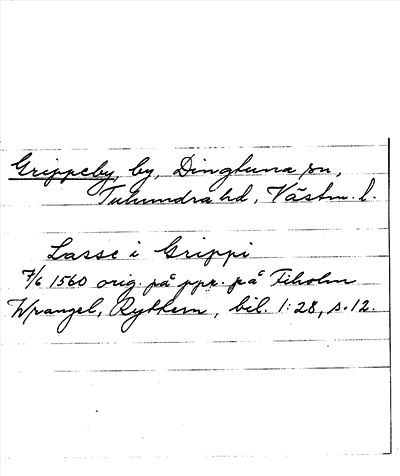 Grippeby, by, Dingtuna sn,
Tuhundra hd, Västm. l.
Lasse i Grippi
7/6 1560 orig. på ppr. på Tiholm
Wrangel, Ryttern, bil. 1:28, s. 12.